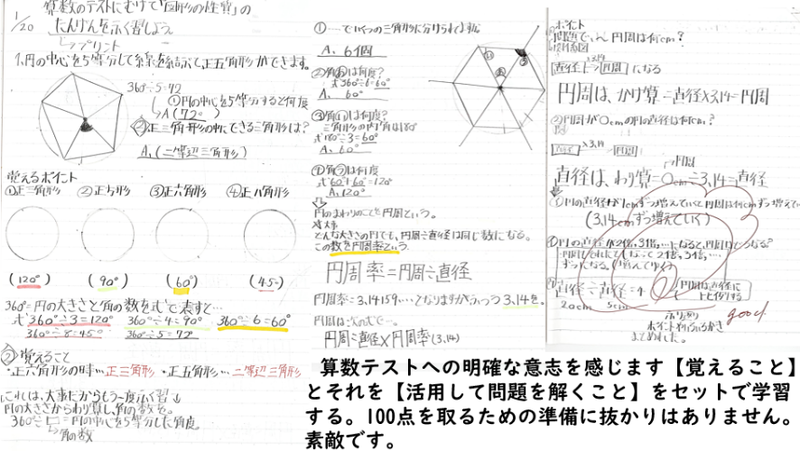 1/20
算数のテストにむけて「図形の性質」の
たんげんを示く習しよう
→プリント
1、円の中心を5等分して点を結ぶで、正五角形ができます。
360°÷5=72
①円の中心を5等分すると何度
→A(72°)
②正五角形の中にできる三角形は?
A、(二等辺三角形)
覚えるポイント
①正三角形 ②正方形 ③正六角形 ④正八角形
(120°) (90°) (60°) (45°)
360°=円の大きさと角の数を式で表すと…
式 360°÷3=120° 360°÷4=90° 360°÷6=60°
360°÷8=45° 360°÷5=72
②覚えること
・正六角形の時…正三角形 ・正五角形…二等辺三角形
これは、大事だからもう一度示く習↓
円の大きさからわり算し、角の数を。
360°÷□=円の中心を5等分した角度
角の数
①…でいくつの三角形に分けられてますか
A、6個
②角あは何度?
式360°÷6=60°
A、60°
③角いは何度?
三角形の内角は180°
式180°÷3=60°
A、60°
④角うは何度
式60°+60°=120°
A、120°
円のまわりのことを円周という。
大事
どんな大きさの円でも、円周÷直径は同じ数になる。
この数を円周率という。
円周率=円周÷直径
円周率=3.14159…となりますがふつう3.14を。
円周は次の式で…。
円周=直径×円周率(3.14)
ポイント
円周は何cm?
直径 ×3.14 円周 になる
円周は、かけ算=直径×3.14=円周
②円周が○cmの円の直径は何cm?
×3.14
円周
直径は、わり算=○cm÷3.14=直径
①円の直径が1cmずつ増えていくと円周は何cmずつ増えて
(3.14cmずつ増えていく)
円周は直径に
ヒレイする
20cm 5cm
good
算数テストへの明確な意志を感じます【覚えること】
とそれを【活用して問題を解くこと】をセットで学習
する。100点を取るための準備に抜かりはありません。
素敵です。